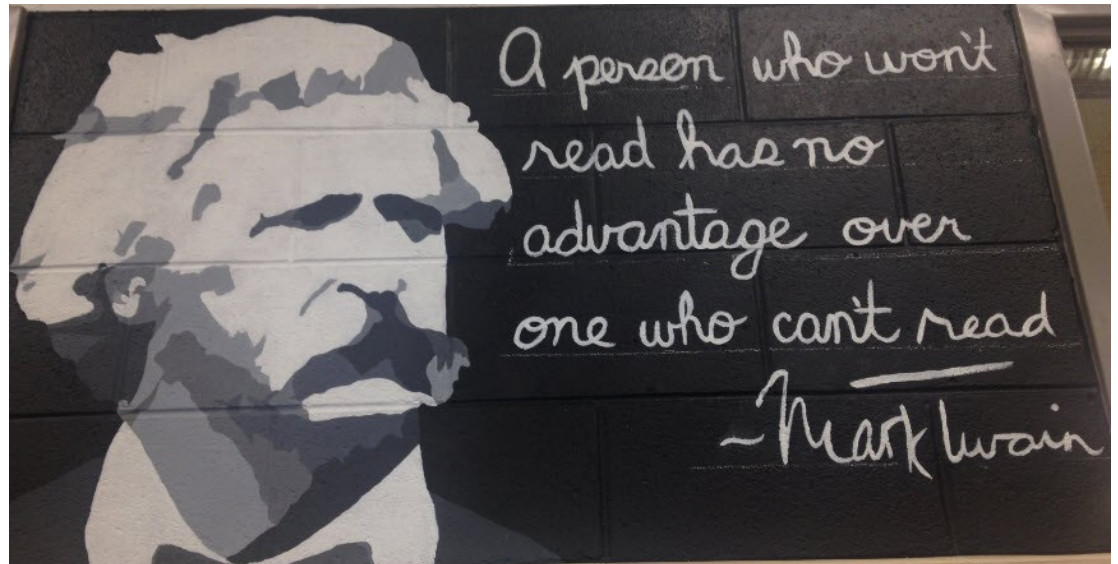 A person who won't
read has no
advantage over
one who can't read
~Mark Twain